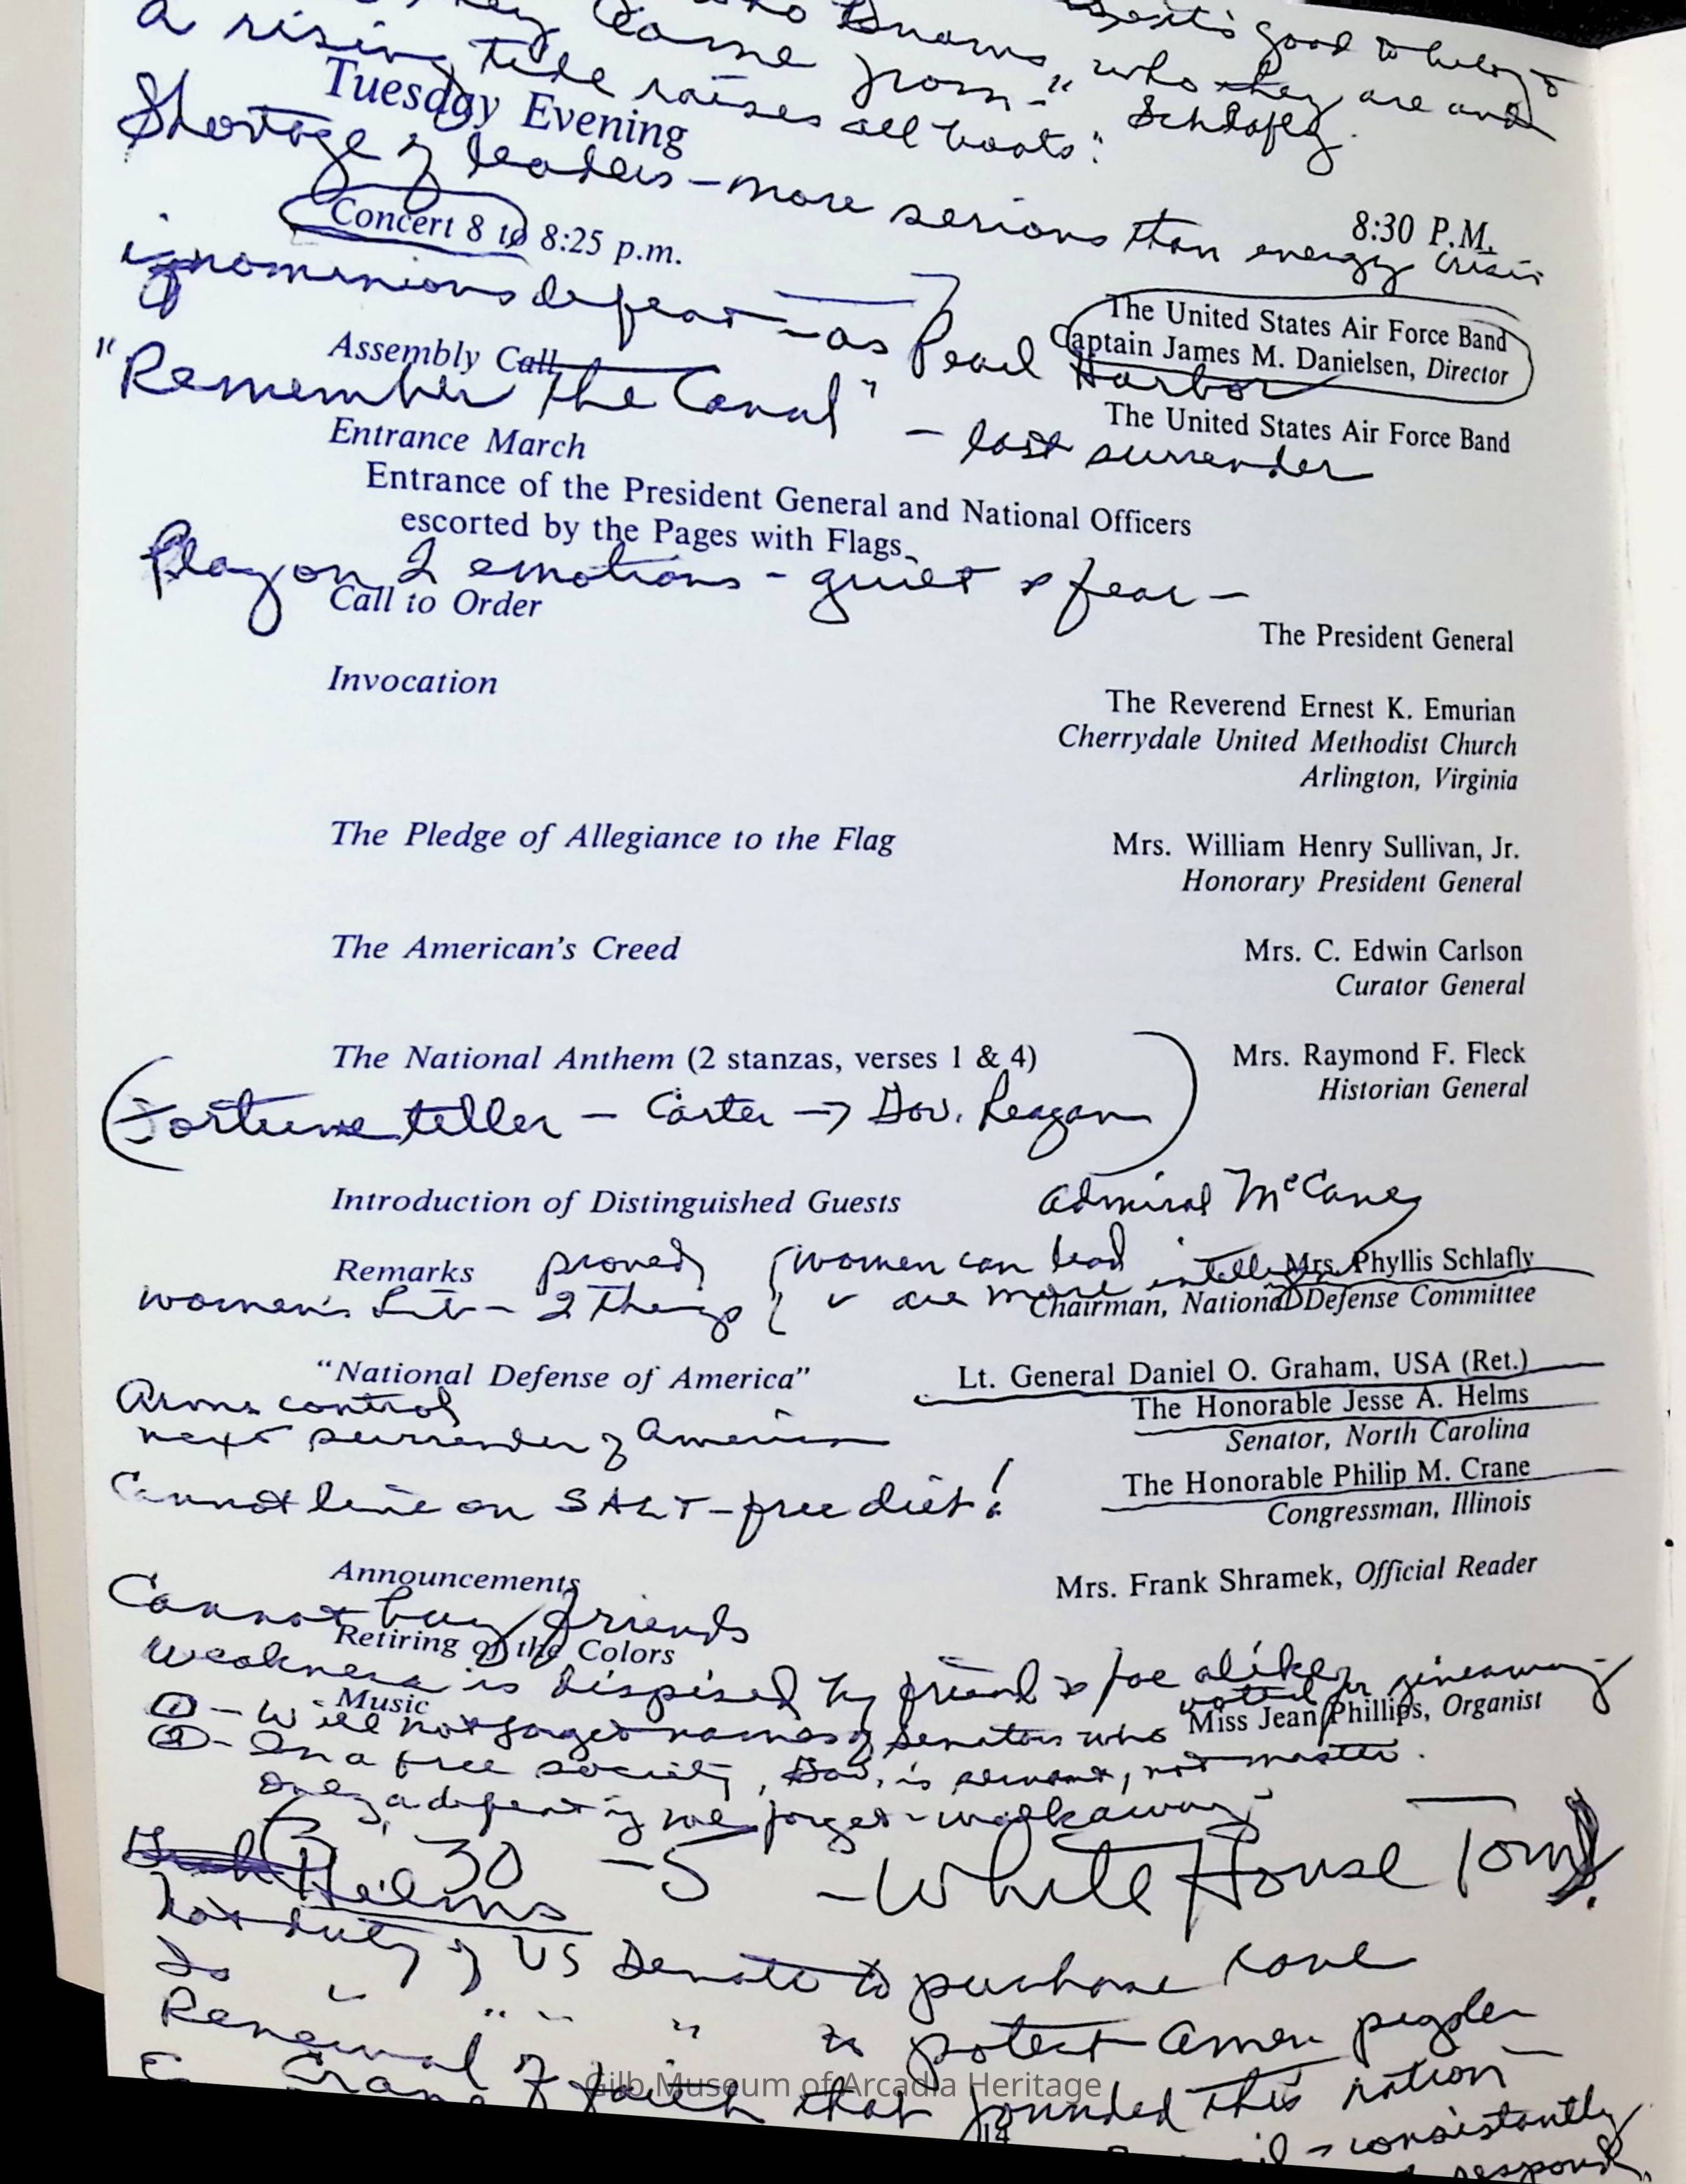 they come from—" who knows, who they are and
it's good to belong to
a rising tide raises all boats." Schlafly.
Tuesday Evening
Shortage of leaders – more serious than energy crisis
8:30 P.M.
Concert 8 to 8:25 p.m.
ignominious defeat – as Pearl Harbor
The United States Air Force Band
Captain James M. Danielsen, Director
Assembly Call
The United States Air Force Band
"Remember the Canal" – last surrender
Entrance March
Entrance of the President General and National Officers
escorted by the Pages with Flags
Play on 2 emotions – guilt & fear –
Call to Order
The President General
Invocation
The Reverend Ernest K. Emurian
Cherrydale United Methodist Church
Arlington, Virginia
The Pledge of Allegiance to the Flag
Mrs. William Henry Sullivan, Jr.
Honorary President General
The American's Creed
Mrs. C. Edwin Carlson
Curator General
The National Anthem (2 stanzas, verses 1 & 4)
Mrs. Raymond F. Fleck
Historian General
(Fortune teller – Carter → Gov. Reagan)
Introduction of Distinguished Guests
Admiral McCaney
Remarks
proved { women can lead
Mrs. Phyllis Schlafly
women's Lib – 2 things { " are more intelligent
Chairman, National Defense Committee
"National Defense of America"
Lt. General Daniel O. Graham, USA (Ret.)
Arms control
The Honorable Jesse A. Helms
next surrender of America
Senator, North Carolina
The Honorable Philip M. Crane
Cannot live on SALT-free diet!
Congressman, Illinois
Announcements
Mrs. Frank Shramek, Official Reader
Cannot buy friends
Retiring of the Colors
Weakness is dispised by friend & foe alike
Music
Miss Jean Phillips, Organist
① – Will not forget names of senators who voted for giveaway
② – In a free society, Gov. is servant, not master.
Only a defeat if we forget – walk away
30 – 5 – White House Tom
Helms
Not duty of US Senate to purchase love
Is " " " " to protest Amer people
Renewal of faith that founded this nation
Crane
consistantly
respond
Gilb Museum of Arcadia Heritage
14